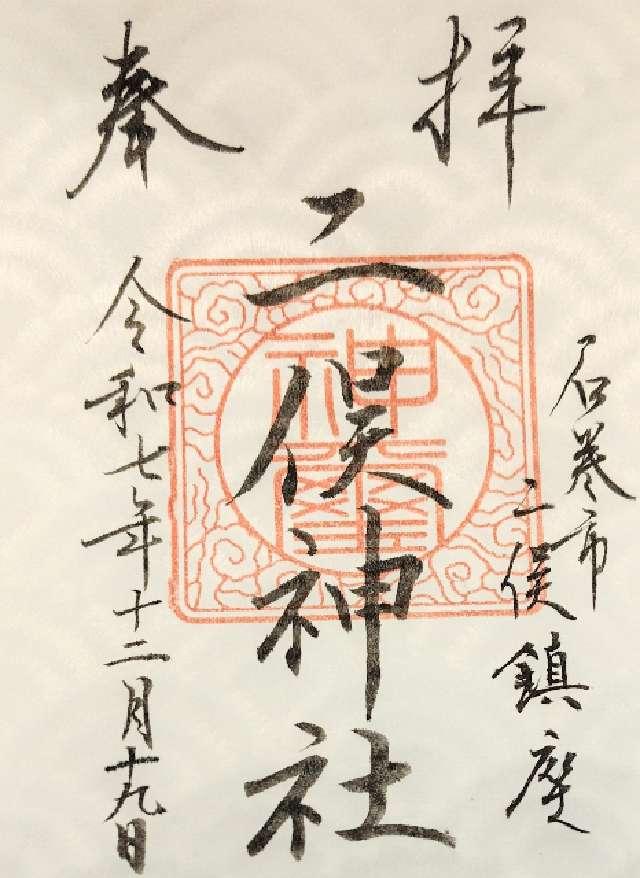 奉拝
石巻市
二俣鎮座
二俣神社
神璽
令和七年十二月十九日